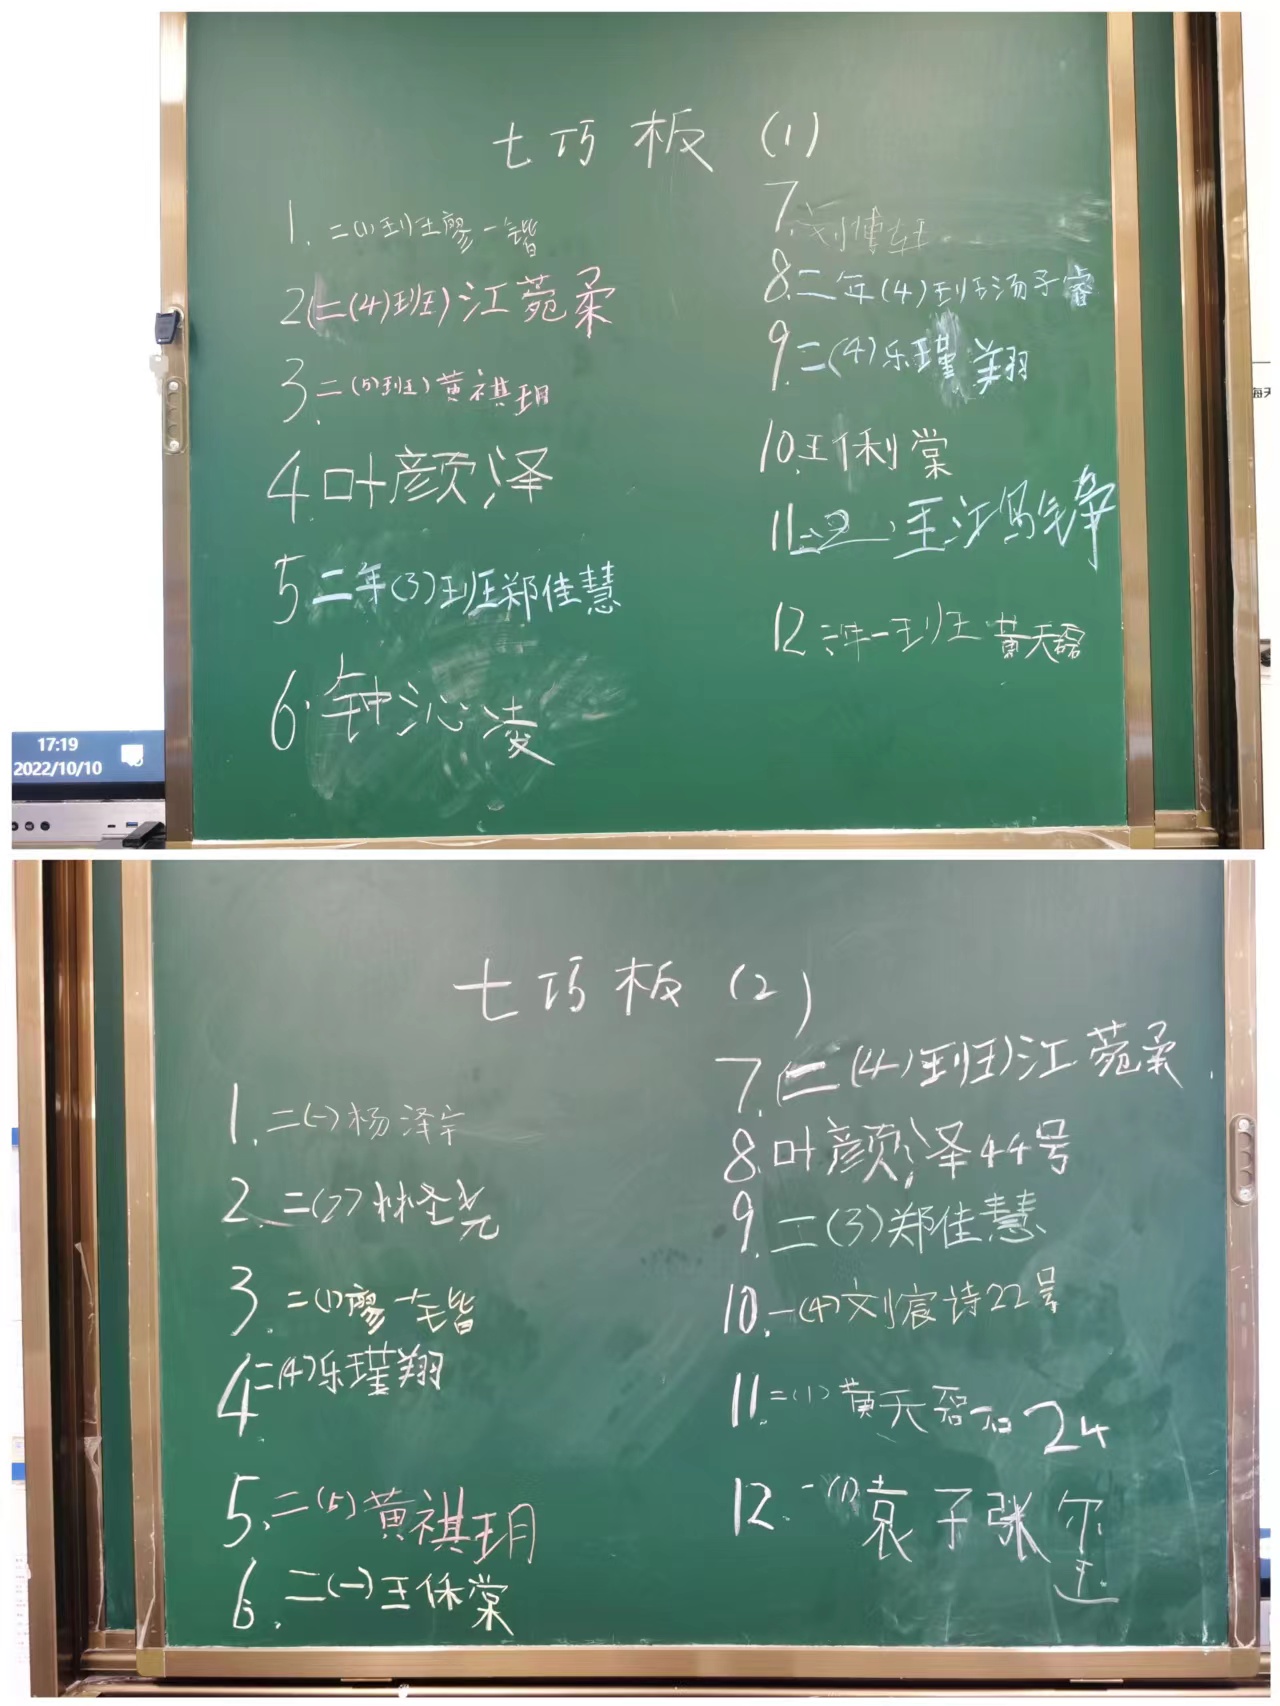 七巧板 (1)
1. 二(1)班廖一锴
2(二(4)班)江菀柔
3.二(5)班)黄祺玥
4.叶颜泽
5二年(3)班郑佳慧
6.钟沁凌
7.刘博
8.二年(4)班汤子睿
9.二(4)乐瑾翔
10.王 棠
11.二 江
12 二年一班 黄天磊
17:19
2022/10/10
七巧板 (2)
1.二(一)杨泽宇
2.二(2)林圣尧
3.二(1)廖一锴
4二(4)乐瑾翔
5.二(5)黄祺玥
6.二(一)王 棠
7.(二(4)班)江菀柔
8.叶颜泽44号
9.二(3)郑佳慧
10.一(4)刘宸诗22号
11.二(1)黄天磊 24
12.一(1)袁子张尔玉